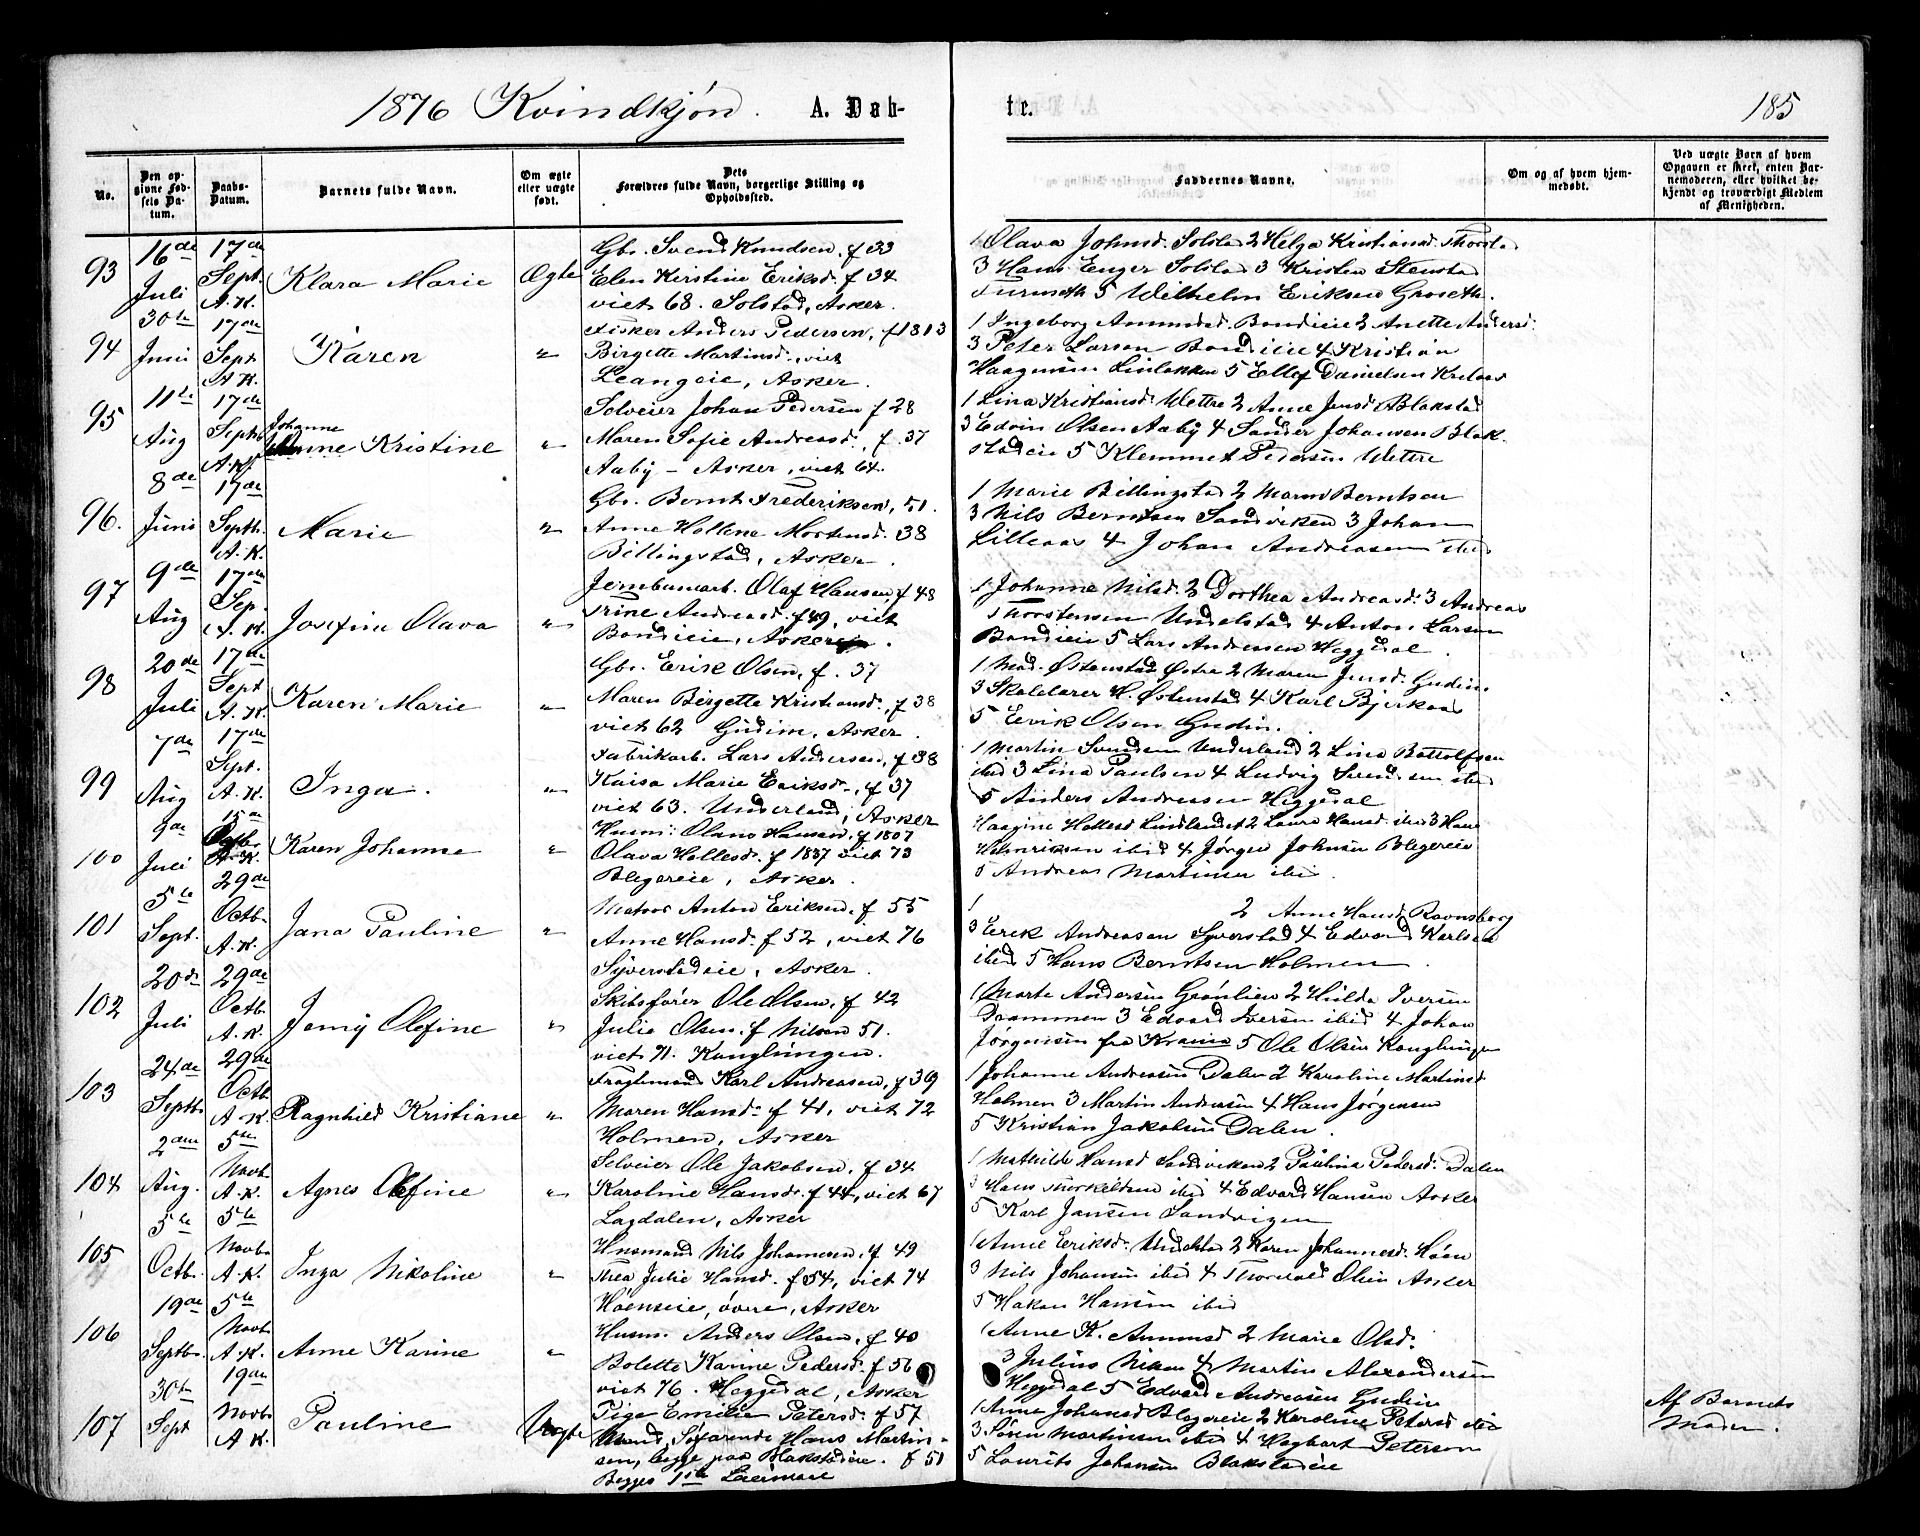 1876 Kvindkjøn. A. Døb-
te. 185
No.
Den op-
givne Fød-
sels Da-
tum.
Daabs-
Datum.
Barnets fulde Navn.
Om ægte
eller uægte
født.
Dets
Forældres fulde Navn, borgerlige Stilling og
Opholdssted.
Faddernes Navne.
Om og af hvem hjem-
medøbt.
Ved uægte Børn af hvem
Opgaven er skeet, enten Bar-
nemoderen, eller hvilket be-
kjendt og troværdigt Medlem
af Menigheden.
93
16de
Juli
17de
Sept.
A.K.
Klara Marie
Ægte
Gbr. Svend Knudsen, f 33
Elen Kirstine Eriksd. f 34
viet 68. Solstad, Asker.
1 Olava Johnsd. Solstad 2 Helga Kristiansd.
3 Hans Enger Solstad 3 Kristen Stenstad
5 Wilhelm Eriksen Groseth.
94
30te
Juni
17de
Sept
A.K.
Karen
"
Fisker Anders Pedersen, f 1813
Birgette Martinsd. viet
Leangeie, Asker.
1 Ingeborg Amundsd. Bondieie 2 Anette Andersd.
3 Peter Larsen Bondieie 4 Kristian
Haagensen 5 Ellef Danielsen
95
11te
Aug
17de
Septb
A.K.
Johanne
Kristine
"
Selveier Johan Pedersen f 28
Maren Sofie Andreasd., f. 37
Aaby - Asker, viet 64.
1 Lina Kristiansd. Wettre 2 Anne Jensd Blakstad
3 Edvin Olsen Aaby 4 Sander Johansen Blak-
stadeie 5 Klemmet Pedersen Wettre
96.
8de
Juni
17de
Septb.
A.K.
Marie
"
Gbr. Bernt Frederiksen, 51.
Anne Hellene Mortensd. 38
Billingstad, Asker.
1 Marie Billingstad 2 Maren Berntsen
3 Nils Berntsen Sandviken 3 Johan
Lilleaas 4 Johan Andreasen ibid
97
9de
Aug
17de
Sep.
A.K.
Josefine Olava
"
Jernbanearb. Olaf Hansen, f 48
Trine Andreasd. f 49, viet
Bondieie, Asker.
1 Johanne Nilsd. 2 Dorthea Andreasd. 3 Andreas
Thorstensen Undelstad 4 Anton Larsen
Bondieie 5 Lars Andreasen Heggedal.
98
20de
Juli
17de
Sept
A.K.
Karen Marie
"
Gbr. Erik Olsen, f. 37
Maren Birgette Kristiansd., f 38
viet 62 Gudim, Asker.
1 Mad. Østenstad Østre 2 Maren Jensd. Gudim
3 Skoledarer H. Østenstad 4 Karl Bjerkaas
5 Erik Olsen Gudim.
99
7de
Aug
17de
Sept.
A.K.
Inga.
"
Fabrikarb. Lars Andersen, f 38
Kaisa Marie Eriksd., f 37
viet 63. Underland, Asker
1 Martin Svendsen Underland 2 Lina Bottolfsen
ibid 3 Lina Paulsen 4 Ludvig Svendsen ibid
5 Anders Andreasen Heggedal
100
9de
Juli
15de
Octbr.
A.K.
Karen Johanne
"
Husm: Olaus Hansen, f 1807
Olava Hellesd. f 1837 viet 73
Blegereie, Asker.
Haagine Hellesd Lindlandet 2 Laura Hansd. ibid 3 Hans
Henriksen ibid 4 Jørgen Johnsen Blegereie
5 Andreas Martinsen ibid.
101
5te
Sept.
29de
Octb.
A.K.
Jana Pauline
"
Matros Anton Eriksen, f 55
Anne Hansd. f 52, viet 76
Syverstadeie, Asker.
1 2 Anne Hansd. Ravnsborg
3 Erik Andreasen Syverstad 4 Edvard Karlsen
ibid 5 Hans Berntsen Holmen.
102
20de
Juli
29de
Octb.
A.K.
Jenny Olefine
"
Skibsfører Ole Olsen, f 42
Julie Olsen f Nilsen 51.
viet 71. Konglungen.
1 Marte Andersen Grønlien 2 Hilda Iversen
Drammen 3 Edvard Iversen ibid 4 Johan
Jørgensen fra Krania 5 Ole Olsen Konglungen
103
24de
Septb.
29de
Octb
A.K.
Ragnhild Kristiane
"
Fragtemand Karl Andreasen, f 39
Maren Hansd. f 41, viet 72
Holmen, Asker
1 Johanne Andreasen Dalen 2 Karoline Martinsd
Holmen 3 Martin Andersen 4 Hans Jørgensen
5 Kristian Jakobsen Dalen.
104
2den
Aug.
5te
Novb.
A.K.
Agnes Olefine
"
Selveier Ole Jakobsen, f 34
Karoline Hansd. f 44, viet 67
Lagdalen, Asker
1 Mathilde Hansd Sandviken 2 Paulina Pedersd. Dalen
3 Hans Thorkildsen ibid 4 Edvard Hansen Asker
5 Karl Jansen Sandvigen
105
5te
Octb.
5te
Novb.
A.K.
Inga Nikoline
"
Husmand Nils Johannesen, f 49
Thea Julie Hansd. f 54, viet 74
Høenseie, øvre, Asker
1 Anne Eriksd. Undelstad 2 Karen Johannesd. Høen
3 Nils Johansen ibid 4 Thorvald Olsen Asker
5 Hakon Hansen ibid
106
19de
Septb.
5te
Novb.
A.K.
Anne Karine
"
Husm. Anders Olsen, f 40
Bolette Karine Pedersd. f 56
viet 76. Heggedal, Asker
1 Anne K. Amundsd 2 Marie Olsd.
3 Julius Nilsen 4 Martin Alexandersen
Heggedal 5 Edvard Andreasen Gudim
107
30te
Sept
19de
Novb.
A.K.
Pauline
Uægte
Pige Emilie Petersd. f 57
Søfarende Hans Martin-
sen, begge paa Blakstadeie. f 51
Begges 1ste Leiermaal
1 Anne Johansd Blegereie 2 Karoline Petersd ibid
3 Søren Martinsen ibid 4 Hagbart Peterson
5 Laurits Johansen Blakstadeie
Af Barnets
Moder.